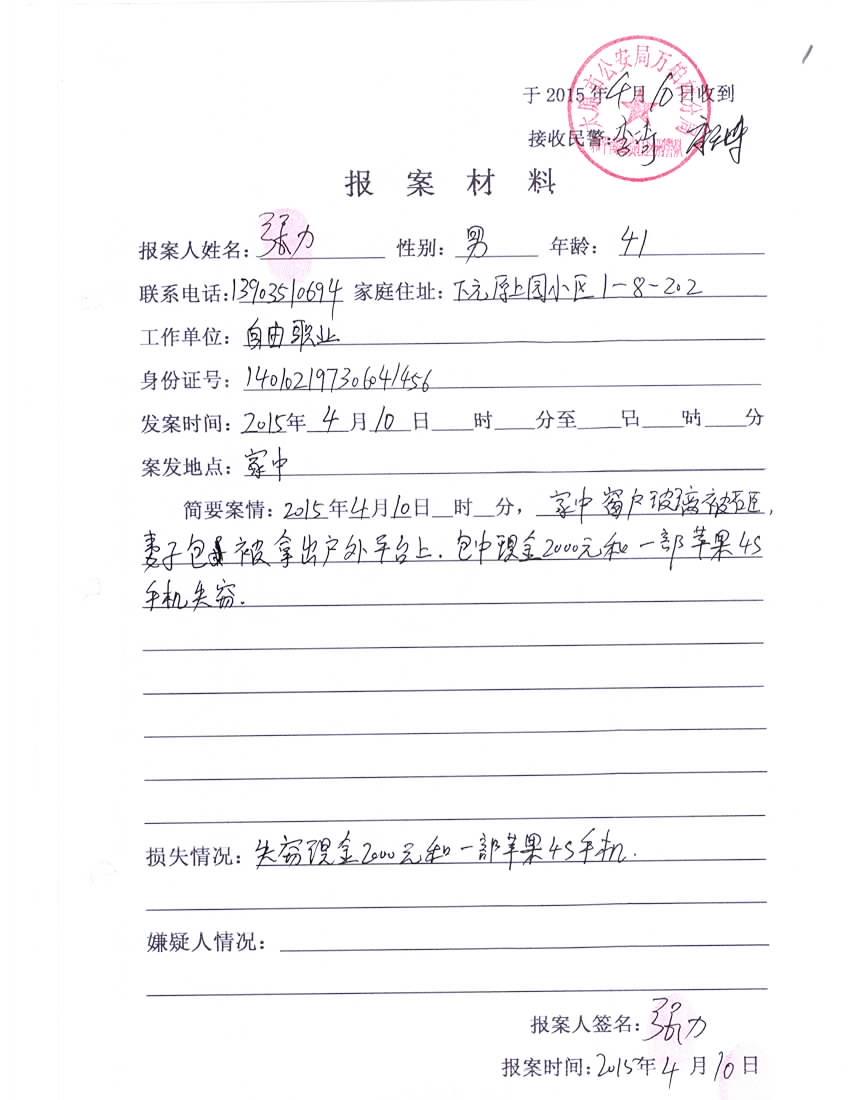 于2015年4月10日收到
太原市公安局万柏林分局
接收民警:李涛
报 案 材 料
报案人姓名:张力 性别:男 年龄:41
联系电话:13903510694 家庭住址:下元原上园小区1-8-202
工作单位:自由职业
身份证号:140102197306041456
发案时间:2015年4月10日 时 分至 日 时 分
案发地点:家中
简要案情:2015年4月10日 时 分,家中窗户玻璃被砸,
妻子包被拿出户外平台上.包中现金2000元和一部苹果4S
手机失窃.
损失情况:失窃现金2000元和一部苹果4S手机.
嫌疑人情况:
报案人签名:张力
报案时间:2015年4月10日